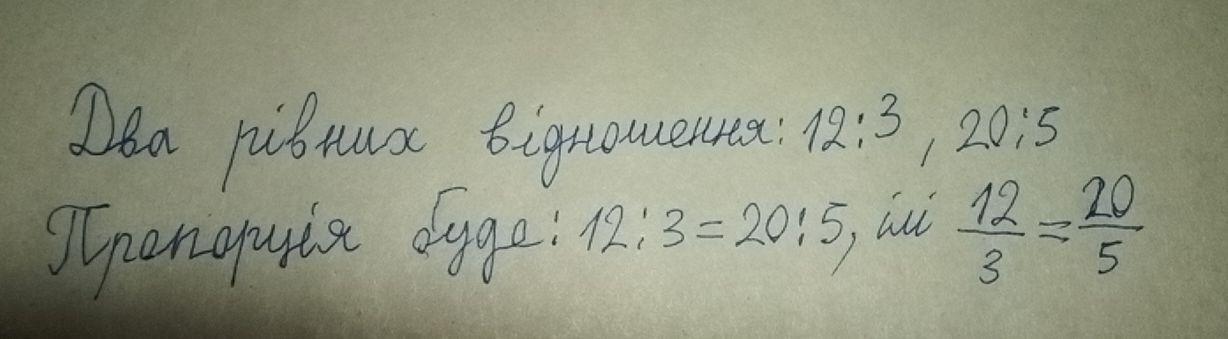 Два рівних відношення: 12:3, 20:5
Пропорція буде: 12:3=20:5, ілі 12/3 = 20/5